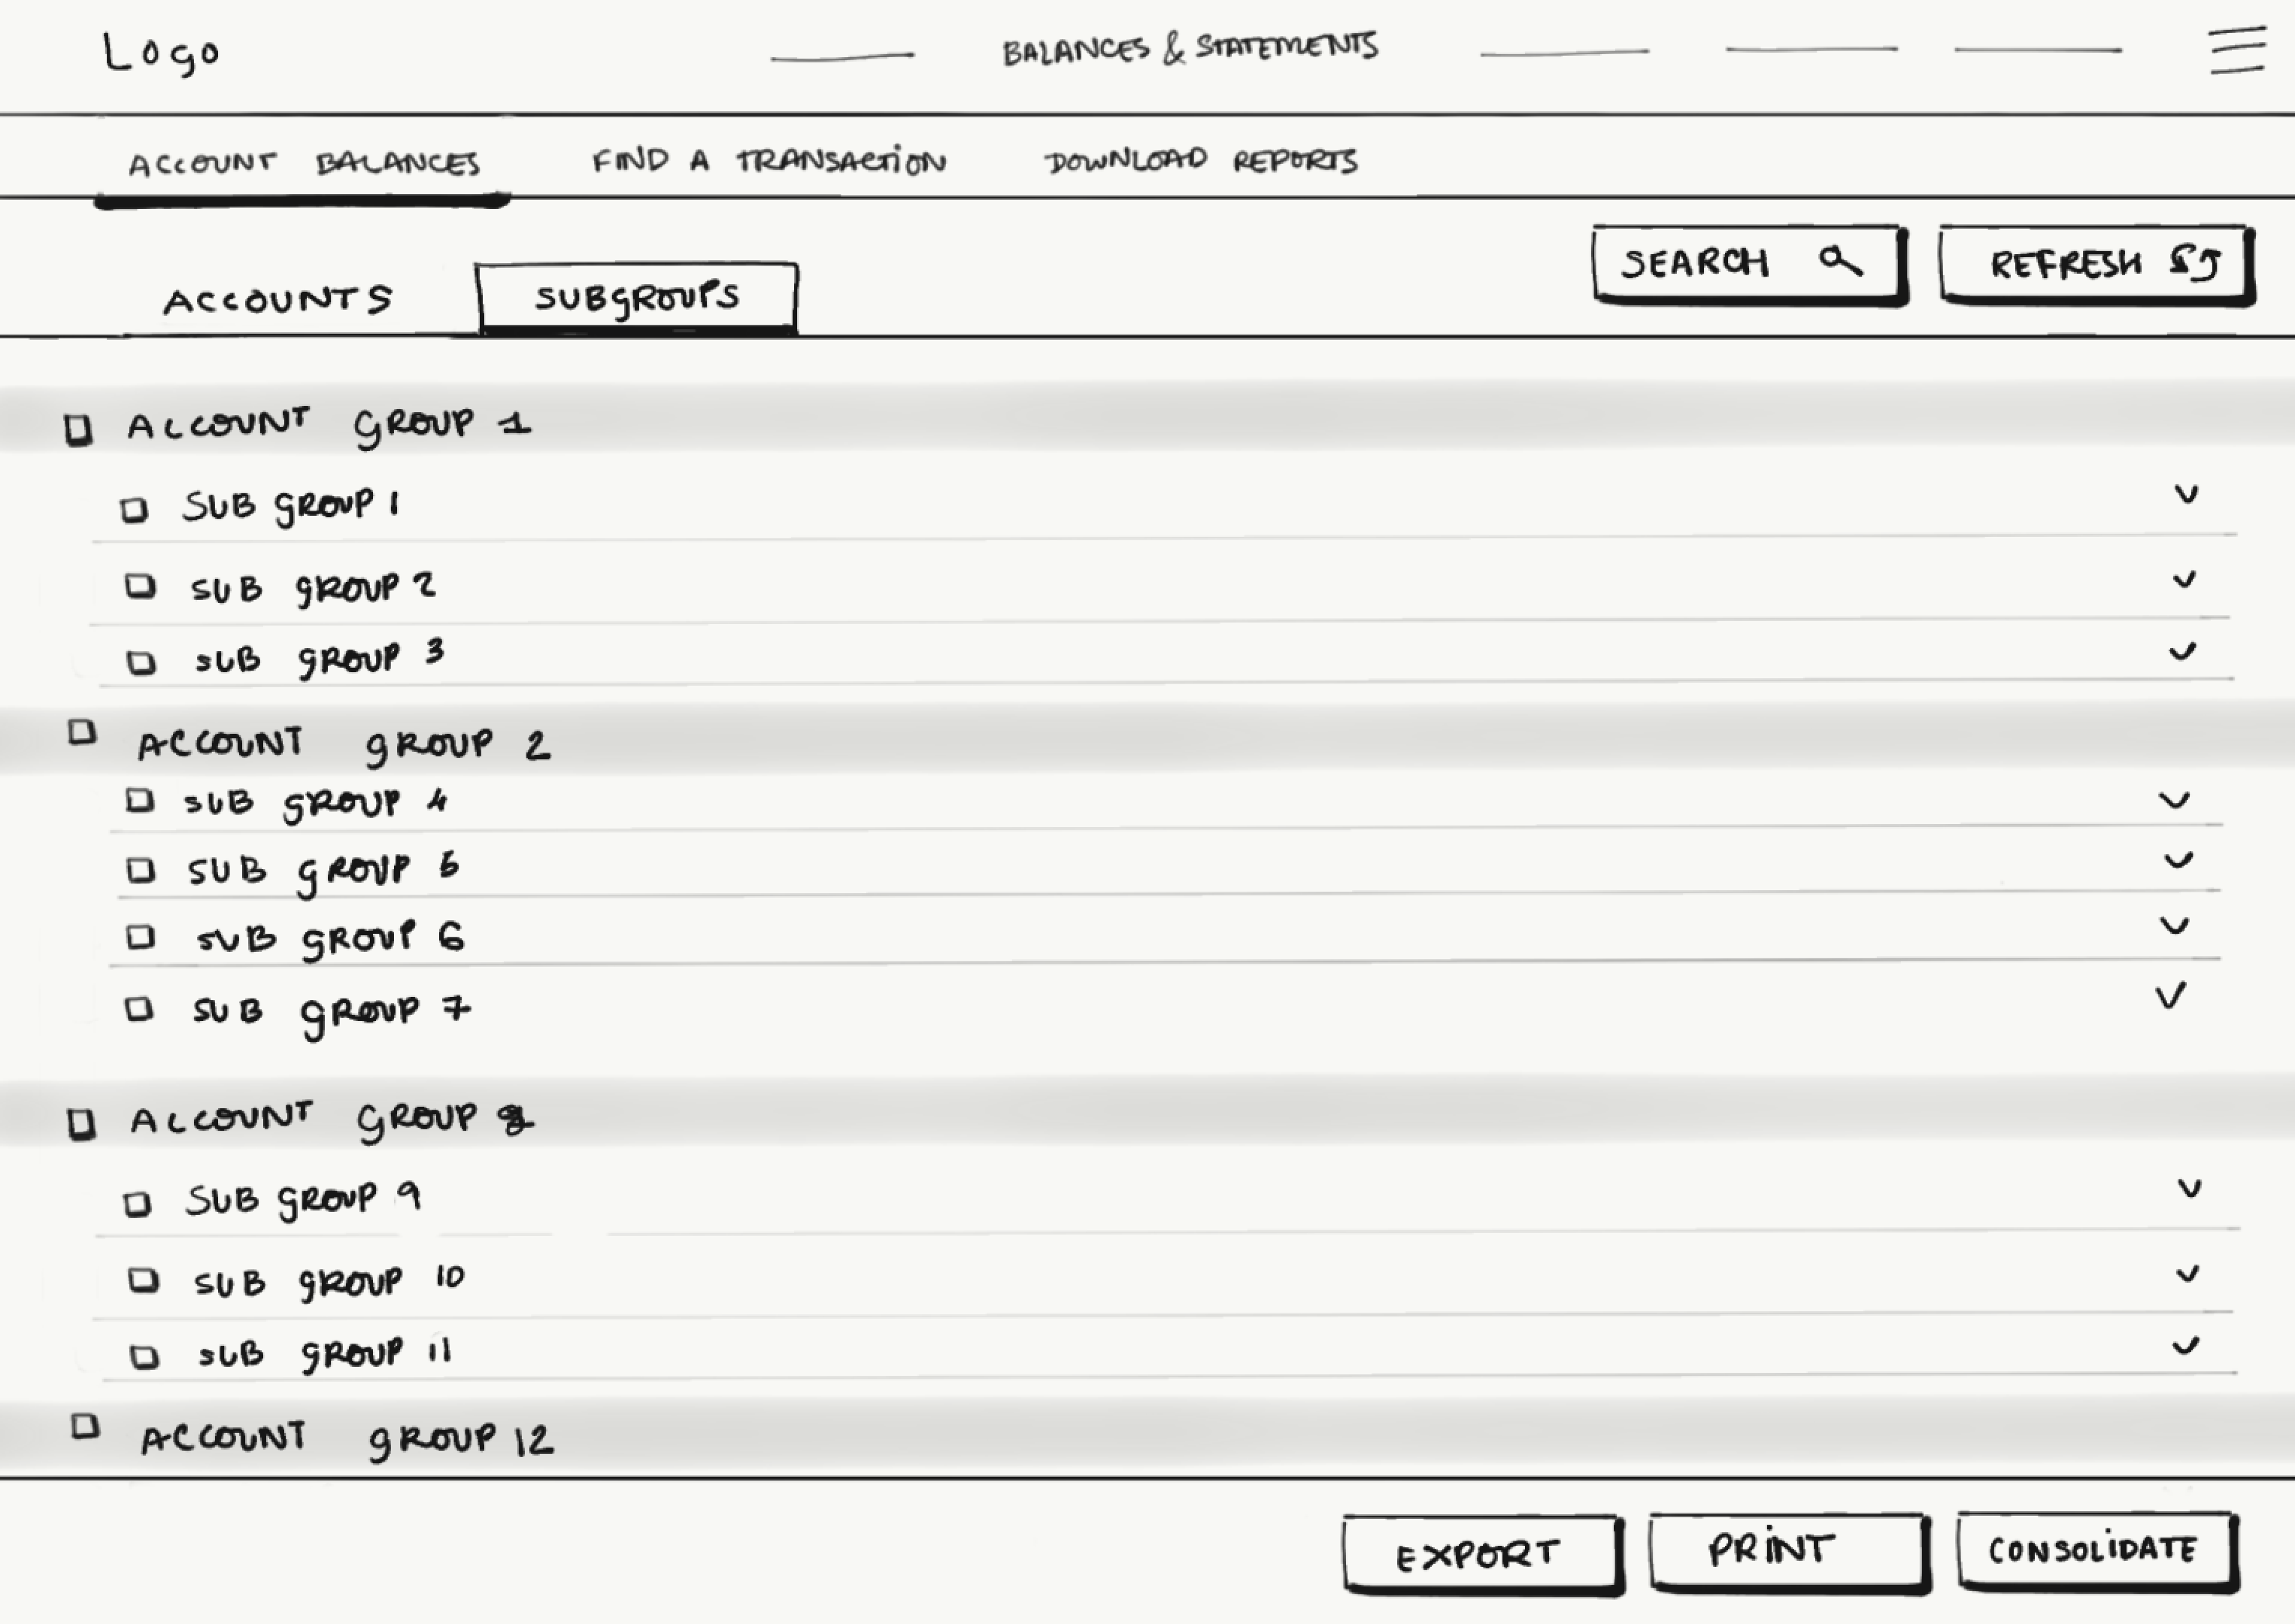 Logo
BALANCES & STATEMENTS
ACCOUNT BALANCES FIND A TRANSACTION DOWNLOAD REPORTS
SEARCH REFRESH
ACCOUNTS SUBGROUPS
ACCOUNT GROUP 1
SUB GROUP 1
SUB GROUP 2
SUB GROUP 3
ACCOUNT GROUP 2
SUB GROUP 4
SUB GROUP 5
SUB GROUP 6
SUB GROUP 7
ACCOUNT GROUP
SUB GROUP 9
SUB GROUP 10
SUB GROUP 11
ACCOUNT GROUP 12
EXPORT PRINT CONSOLIDATE